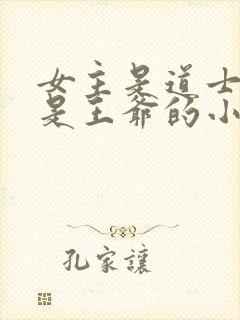 女主是道士
是王爷的小
孔家讓